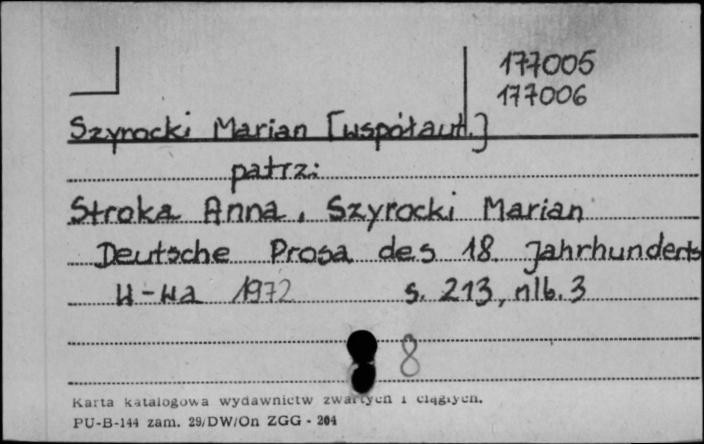 177005
177006
Szyrocki Marian [współaut.]
patrz:
Stroka Anna, Szyrocki Marian
Deutsche Prosa des 18. Jahrhunderts
W-wa 1972 s. 213, nlb. 3
8
Karta katalogowa wydawnictw zwartych i ciągłych.
PU-B-144 zam. 29/DW/On ZGG - 204